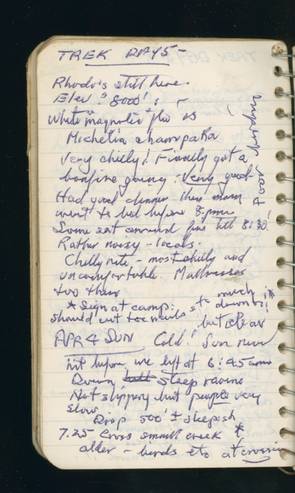 TREK DAY 5 -
Rhodo's still here.
Elev? 8000'
White "magnolia" tree is
Michelia champaka
Very chilly! Finally got a
bonfire going - Very good
Had good dinner then many
went to bed before 8 pm.
Some sat around fire till 8:30.
Rather noisy - locals.
Chilly nite - most chilly and
uncomfortable. Mattresses
too thin
* Sign at camp:
should cut
much
but clear
APR 4 SUN Cold! Sun never
hit before we left at 6:45 am
Down steep ravine
Not slippery but people very
slow.
Drop 500' & steepish
7.25 Cross small creek &
alder - birds etc at crossing